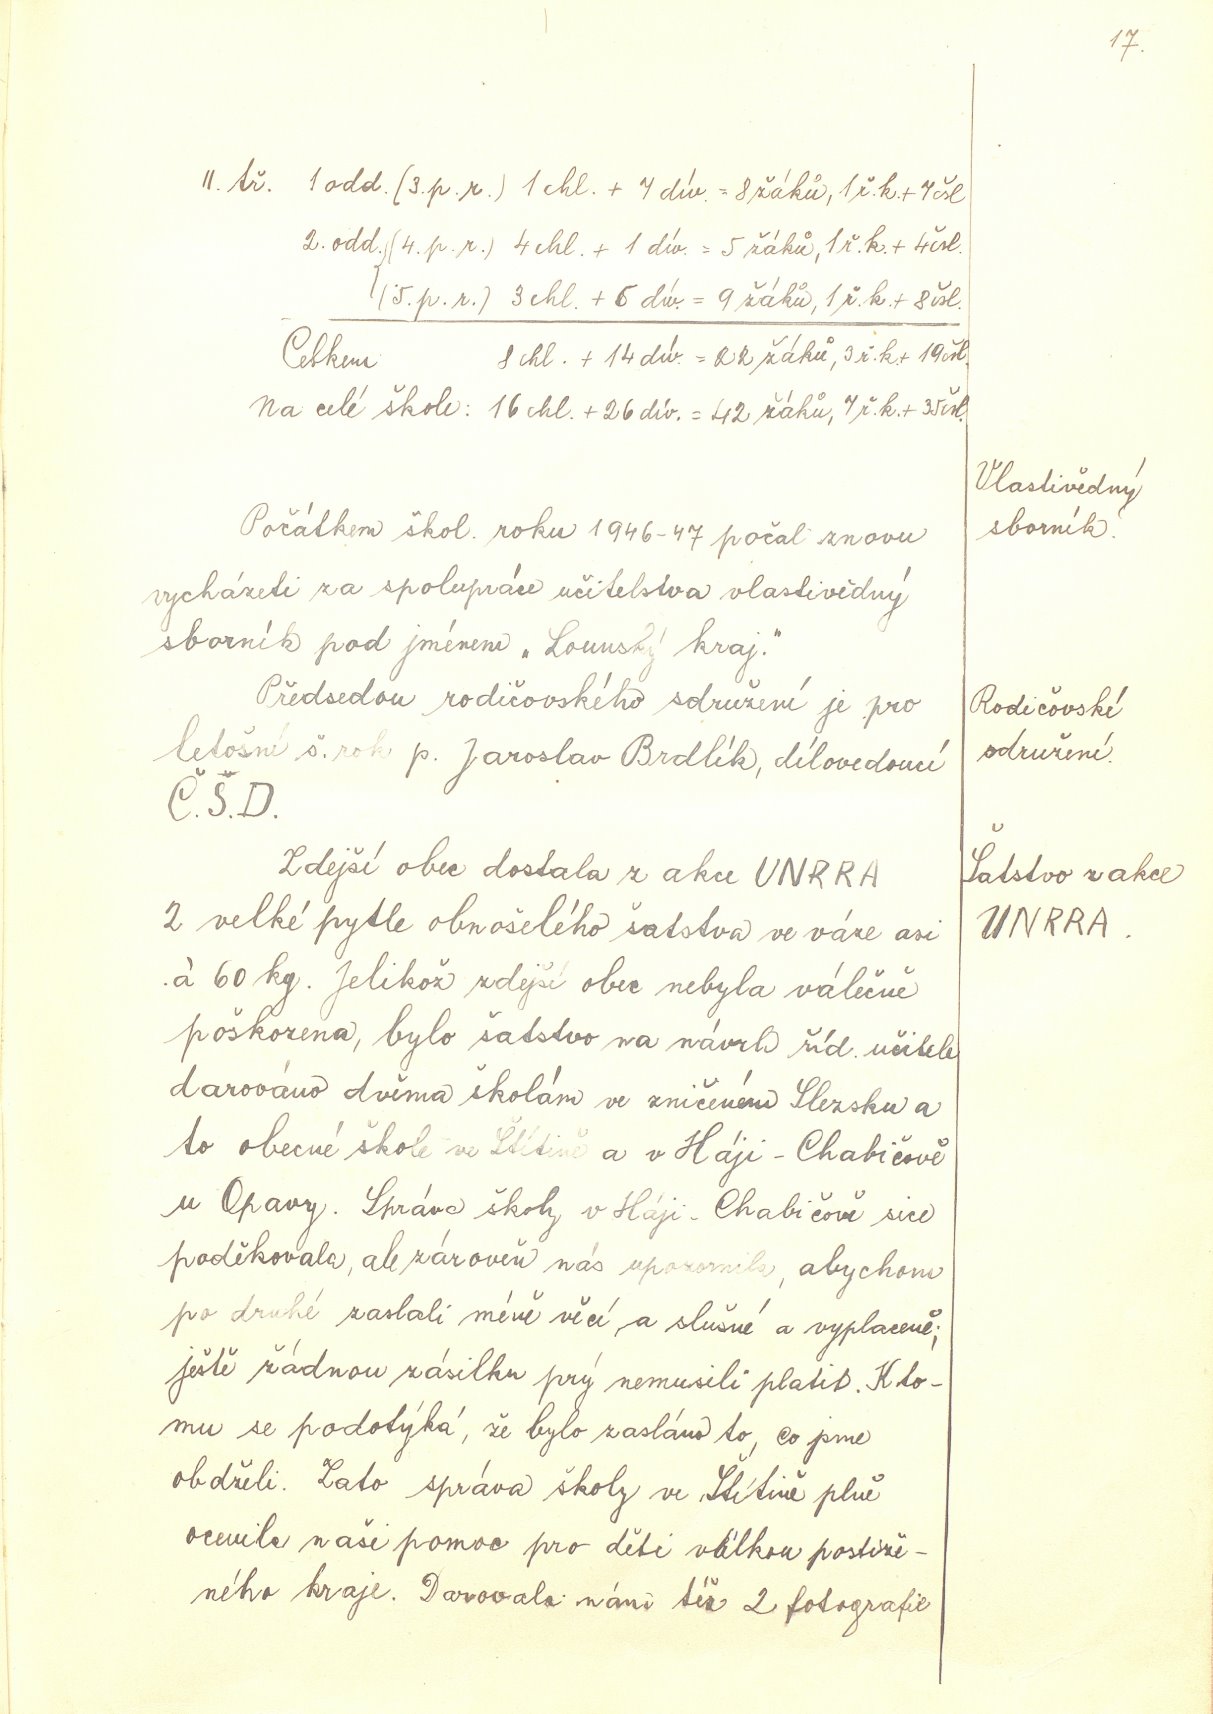 17.
II. tř. 1 odd. (3. p. r.) 1 chl. + 7 dív. = 8 žáků, 1 ř. k. + 7 čsl
2. odd. (4. p. r.) 4 chl. + 1 dív. = 5 žáků, 1 ř. k. + 4 čsl.
(5. p. r.) 3 chl. + 6 dív. = 9 žáků, 1 ř. k. + 8 čsl.
Celkem 8 chl. + 14 dív. = 22 žáků, 3 ř. k. + 19 čsl.
Na celé škole: 16 chl. + 26 dív. = 42 žáků, 7 ř. k. + 35 čsl.
Vlastivědný
sborník.
Počátkem škol. roku 1946-47 počal znovu
vycházeti za spolupráce učitelstva vlastivědný
sborník pod jménem „Lounský kraj."
Rodičovské
sdružení.
Předsedou rodičovského sdružení je pro
letošní š. rok p. Jaroslav Brdlík, dílovedoucí
Č.Š.D.
Šatstvo z akce
UNRRA.
Zdejší obec dostala z akce UNRRA
2 velké pytle obnošeného šatstva ve váze asi
à 60 kg. Jelikož zdejší obec nebyla válečně
poškozena, bylo šatstvo na návrh říd. učitele
darováno dvěma školám ve zničeném Slezsku a
to obecné škole ve Štítině a v Háji - Chabičově
u Opavy. Správa školy v Háji - Chabičově sice
poděkovala, ale zároveň nás upozornila, abychom
po druhé zaslali méně věcí, a slušné a vyplaceně;
ještě žádnou zásilku prý nemusili platit. K to-
mu se podotýká, že bylo zasláno to, co jsme
obdželi. Zato správa školy ve Štítině plně
ocenila naši pomoc pro děti válkou postiže-
ného kraje. Darovala nám též 2 fotografie